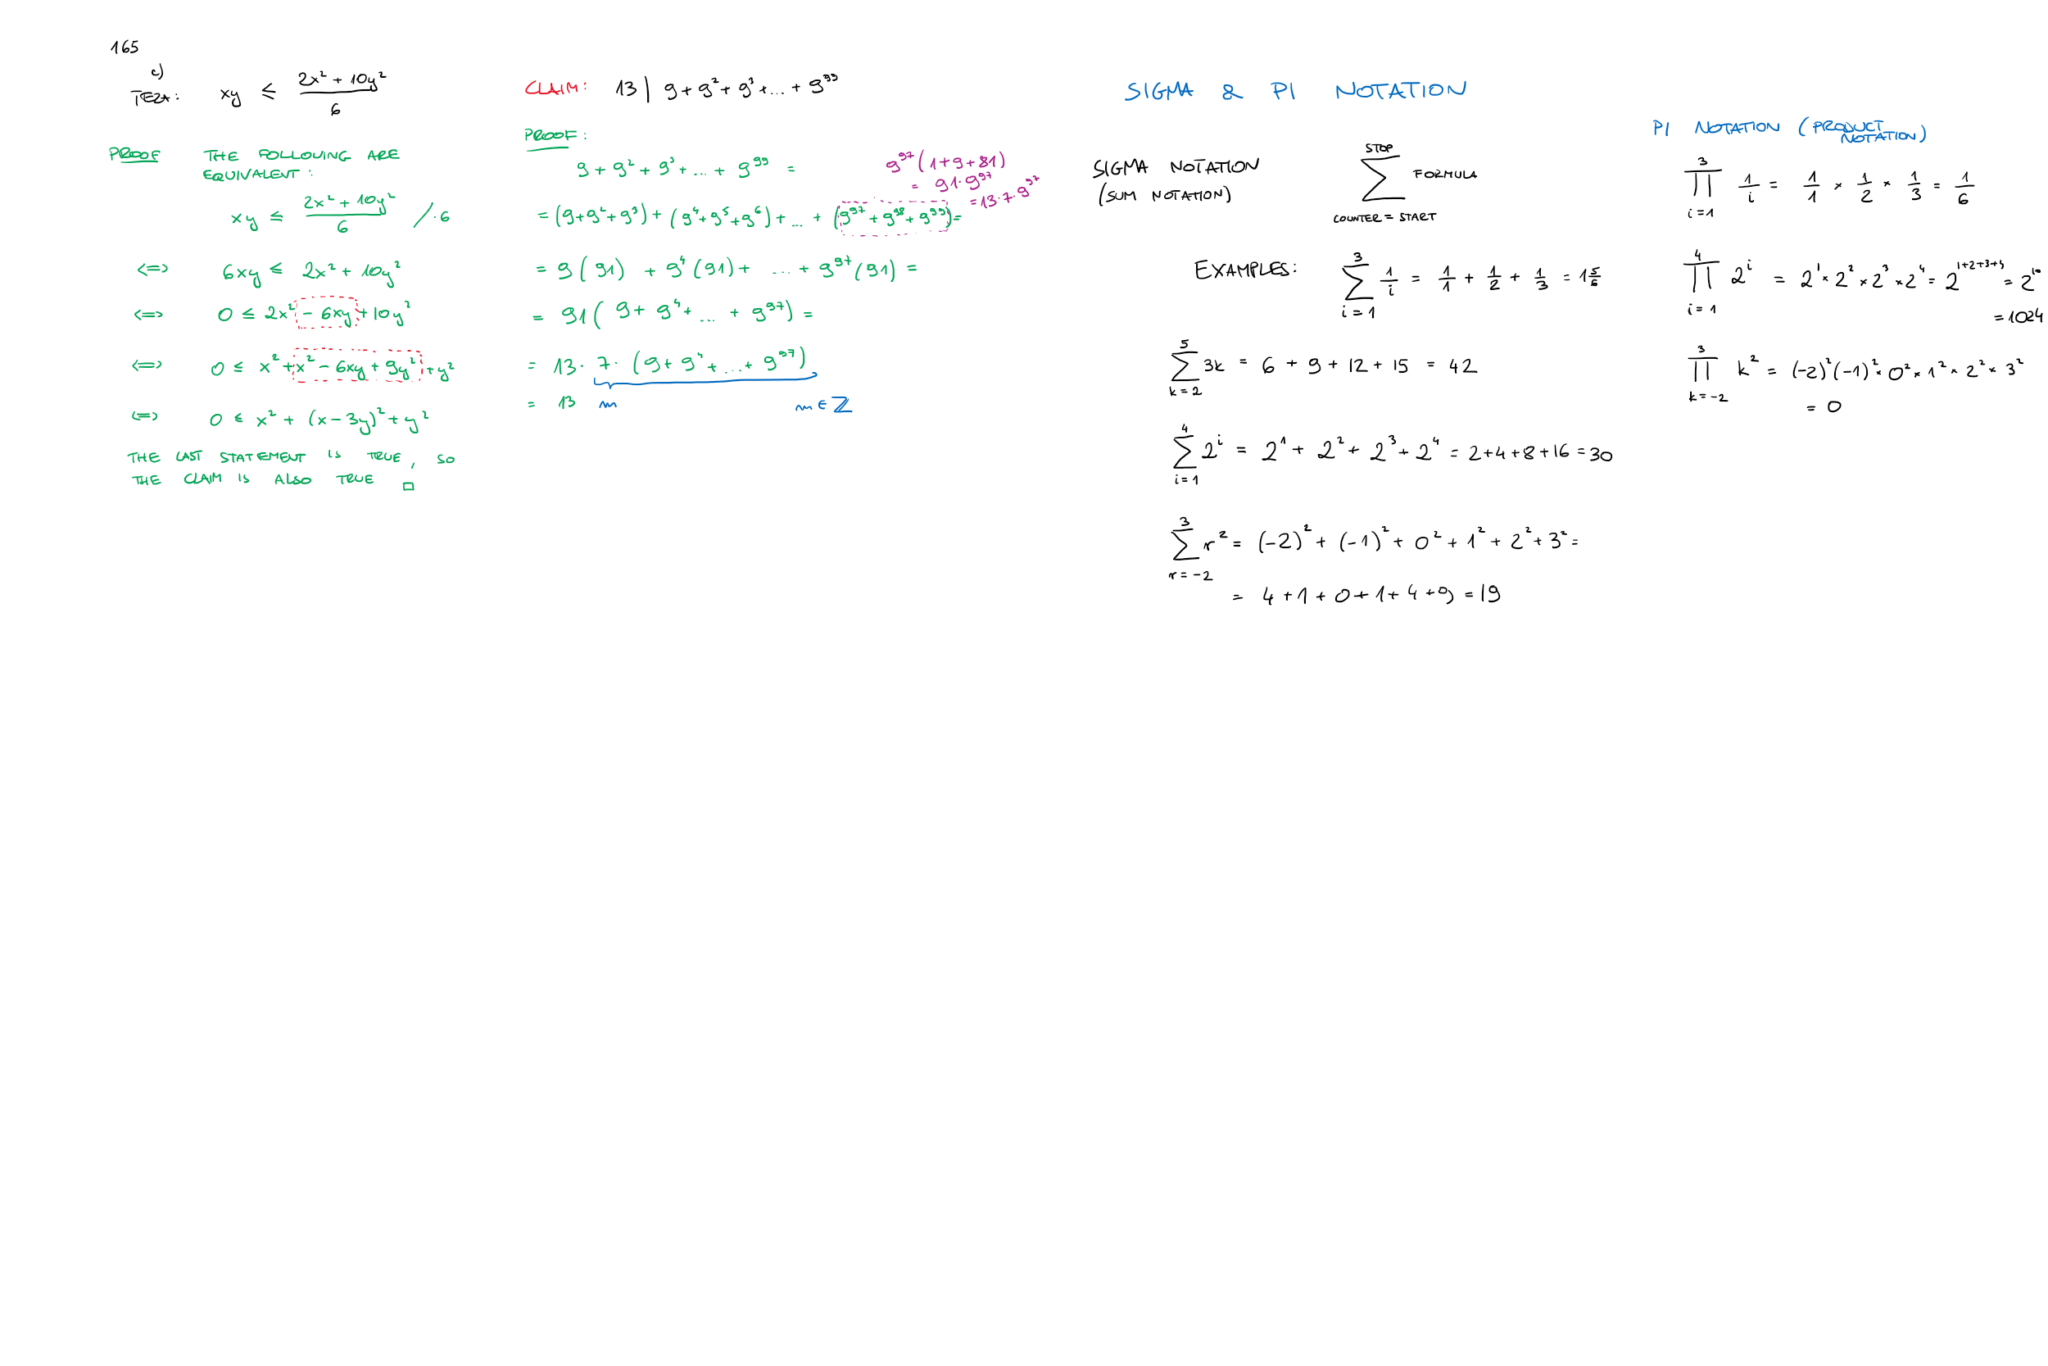 165
c)
TEZA: xy ≤ (2x² + 10y²)/6
PROOF THE FOLLOWING ARE
EQUIVALENT:
xy ≤ (2x² + 10y²)/6 /·6
<=> 6xy ≤ 2x² + 10y²
<=> 0 ≤ 2x² - 6xy + 10y²
<=> 0 ≤ x² + x² - 6xy + 9y² + y²
<=> 0 ≤ x² + (x - 3y)² + y²
THE LAST STATEMENT IS TRUE, SO
THE CLAIM IS ALSO TRUE □
CLAIM: 13 | 9 + 9² + 9³ + ... + 9⁹⁹
PROOF:
9 + 9² + 9³ + ... + 9⁹⁹ =
9⁹⁷(1+9+81)
= 91·9⁹⁷
= 13·7·9⁹⁷
= (9+9²+9³) + (9⁴+9⁵+9⁶) + ... + (9⁹⁷+9⁹⁸+9⁹⁹) =
= 9(91) + 9⁴(91) + ... + 9⁹⁷(91) =
= 91(9 + 9⁴ + ... + 9⁹⁷) =
= 13·7·(9 + 9⁴ + ... + 9⁹⁷)
= 13 m m ∈ ℤ
SIGMA & PI NOTATION
SIGMA NOTATION
(SUM NOTATION)
STOP
∑ FORMULA
COUNTER = START
EXAMPLES:
3
∑ 1/i = 1/1 + 1/2 + 1/3 = 1 5/6
i = 1
5
∑ 3k = 6 + 9 + 12 + 15 = 42
k = 2
4
∑ 2ⁱ = 2¹ + 2² + 2³ + 2⁴ = 2+4+8+16 = 30
i = 1
3
∑ r² = (-2)² + (-1)² + 0² + 1² + 2² + 3² =
r = -2
= 4 + 1 + 0 + 1 + 4 + 9 = 19
PI NOTATION (PRODUCT
NOTATION)
3
∏ 1/i = 1/1 × 1/2 × 1/3 = 1/6
i = 1
4
∏ 2ⁱ = 2¹ × 2² × 2³ × 2⁴ = 2¹⁺²⁺³⁺⁴ = 2¹⁰
i = 1
= 1024
3
∏ k² = (-2)²(-1)² × 0² × 1² × 2² × 3²
k = -2
= 0